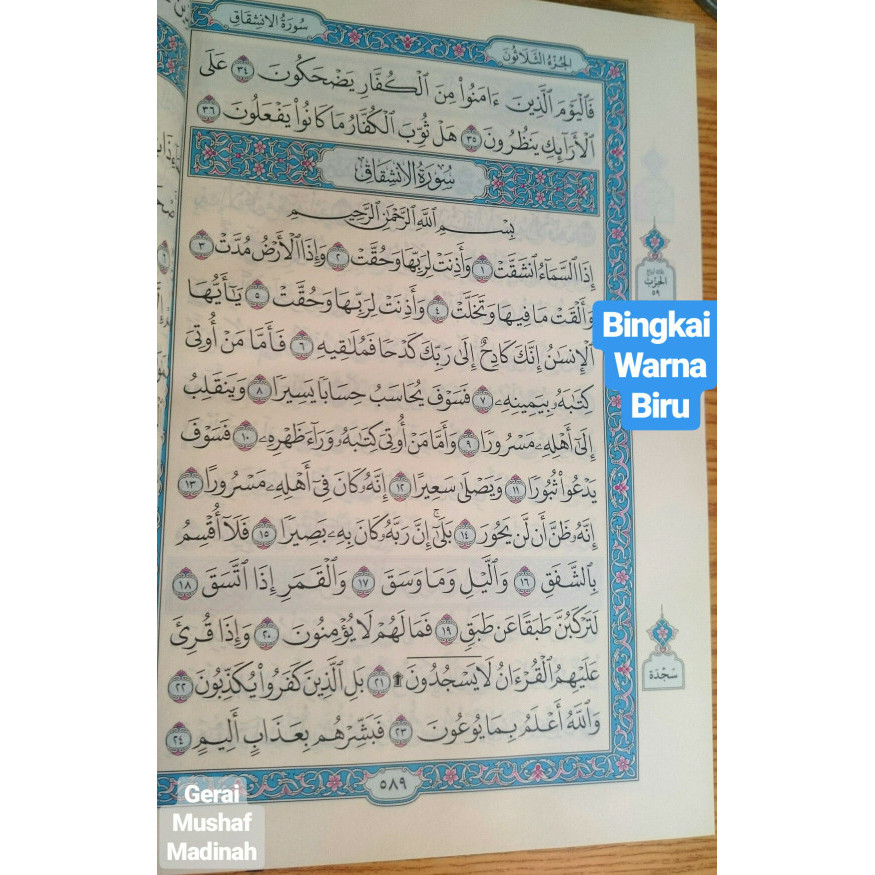 سُورَةُ الِانشِقَاقِ
الجُزْءُ الثَّلَاثُونَ
فَٱلْيَوْمَ ٱلَّذِينَ ءَامَنُوا۟ مِنَ ٱلْكُفَّارِ يَضْحَكُونَ ٣٤ عَلَى
ٱلْأَرَآئِكِ يَنظُرُونَ ٣٥ هَلْ ثُوِّبَ ٱلْكُفَّارُ مَا كَانُوا۟ يَفْعَلُونَ ٣٦
سُورَةُ الِانشِقَاقِ
بِسْمِ ٱللَّهِ ٱلرَّحْمَٰنِ ٱلرَّحِيمِ
إِذَا ٱلسَّمَآءُ ٱنشَقَّتْ ١ وَأَذِنَتْ لِرَبِّهَا وَحُقَّتْ ٢ وَإِذَا ٱلْأَرْضُ مُدَّتْ ٣
وَأَلْقَتْ مَا فِيهَا وَتَخَلَّتْ ٤ وَأَذِنَتْ لِرَبِّهَا وَحُقَّتْ ٥ يَٰٓأَيُّهَا
ٱلْإِنسَٰنُ إِنَّكَ كَادِحٌ إِلَىٰ رَبِّكَ كَدْحًا فَمُلَٰقِيهِ ٦ فَأَمَّا مَنْ أُوتِىَ
كِتَٰبَهُۥ بِيَمِينِهِۦ ٧ فَسَوْفَ يُحَاسَبُ حِسَابًا يَسِيرًا ٨ وَيَنقَلِبُ
إِلَىٰٓ أَهْلِهِۦ مَسْرُورًا ٩ وَأَمَّا مَنْ أُوتِىَ كِتَٰبَهُۥ وَرَآءَ ظَهْرِهِۦ ١٠ فَسَوْفَ
يَدْعُوا۟ ثُبُورًا ١١ وَيَصْلَىٰ سَعِيرًا ١٢ إِنَّهُۥ كَانَ فِىٓ أَهْلِهِۦ مَسْرُورًا ١٣
إِنَّهُۥ ظَنَّ أَن لَّن يَحُورَ ١٤ بَلَىٰٓ إِنَّ رَبَّهُۥ كَانَ بِهِۦ بَصِيرًا ١٥ فَلَآ أُقْسِمُ
بِٱلشَّفَقِ ١٦ وَٱلَّيْلِ وَمَا وَسَقَ ١٧ وَٱلْقَمَرِ إِذَا ٱتَّسَقَ ١٨
لَتَرْكَبُنَّ طَبَقًا عَن طَبَقٍ ١٩ فَمَا لَهُمْ لَا يُؤْمِنُونَ ٢٠ وَإِذَا قُرِئَ
عَلَيْهِمُ ٱلْقُرْءَانُ لَا يَسْجُدُونَ ۩ ٢١ بَلِ ٱلَّذِينَ كَفَرُوا۟ يُكَذِّبُونَ ٢٢
وَٱللَّهُ أَعْلَمُ بِمَا يُوعُونَ ٢٣ فَبَشِّرْهُم بِعَذَابٍ أَلِيمٍ ٢٤
٥٨٩
الحِزْبُ
٥٩
سَجْدَة
Bingkai
Warna
Biru
Gerai
Mushaf
Madinah